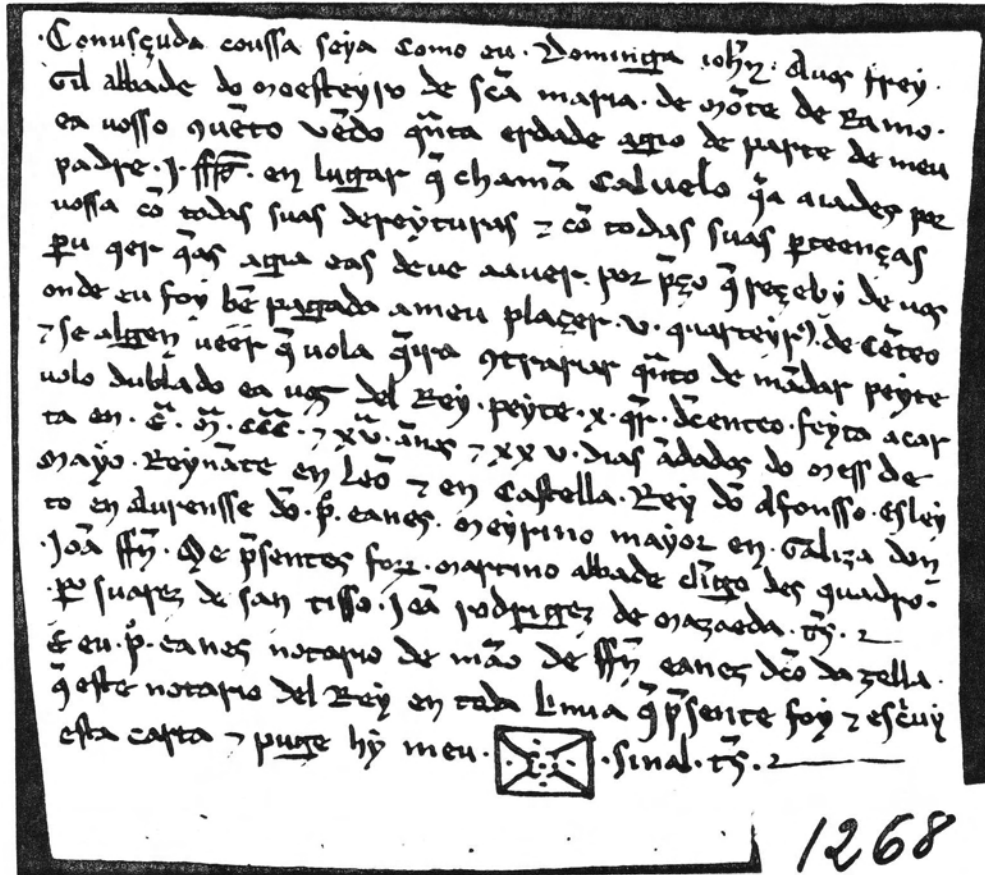 ·Conusçuda coussa seya como eu · Dominga ioh̃n · A uos frey ·
Gil abbade do moesteyro de sc̃a maria · de mõte de Ramo ·
ea uosso ꝯuẽto vẽdo qñta erdade agio de parte de meu
padre · J · ffr̃z · en lugar q̃ chamã Caluelo q̃a aiades por
uossa cõ todas suas dereyturas ⁊ cõ todas suas ꝑteenças
ꝑu qer q̃as agia eas deue aauer · por p̃ço q̃ reçeby de uos
onde eu foy bẽ pagada a meu plaçer · v · quarteyr̃ · de cẽteo
⁊ se algen ueer q̃ uola q̃ira ꝯtrariar qñto de mãdar peyte
uolo dublado ea uoz del Rey · peyte · x · qr̃ · dcenteo · feyta a car
ta en · E · M̃ · CCC̃ · ⁊ xṽ · ãnos ⁊ xx v · dias ãdados do mess de
mayo · Reynãte en Leõ ⁊ en Castella · Rey dõ Afonsso · esley
to en Aurensse dõ · p̃ · eanes · meyrino mayor en · Galiza don
·Joã ffr̃z · Qe p̃sentes forõ · martino abbade cl̃igo des quadrõ ·
·P̃o suarez de san tisso · Joã rodrigez de mazaeda · t̃s ·
E eu · p̃ · eanes notario de mão de ffr̃ eanes dc̃o da zella ·
q̃ este notario del Rey en toda limia q̃ p̃sente foy ⁊ esc̃uy
esta carta ⁊ puge hy meu · · sinal · t̃s ·
1268